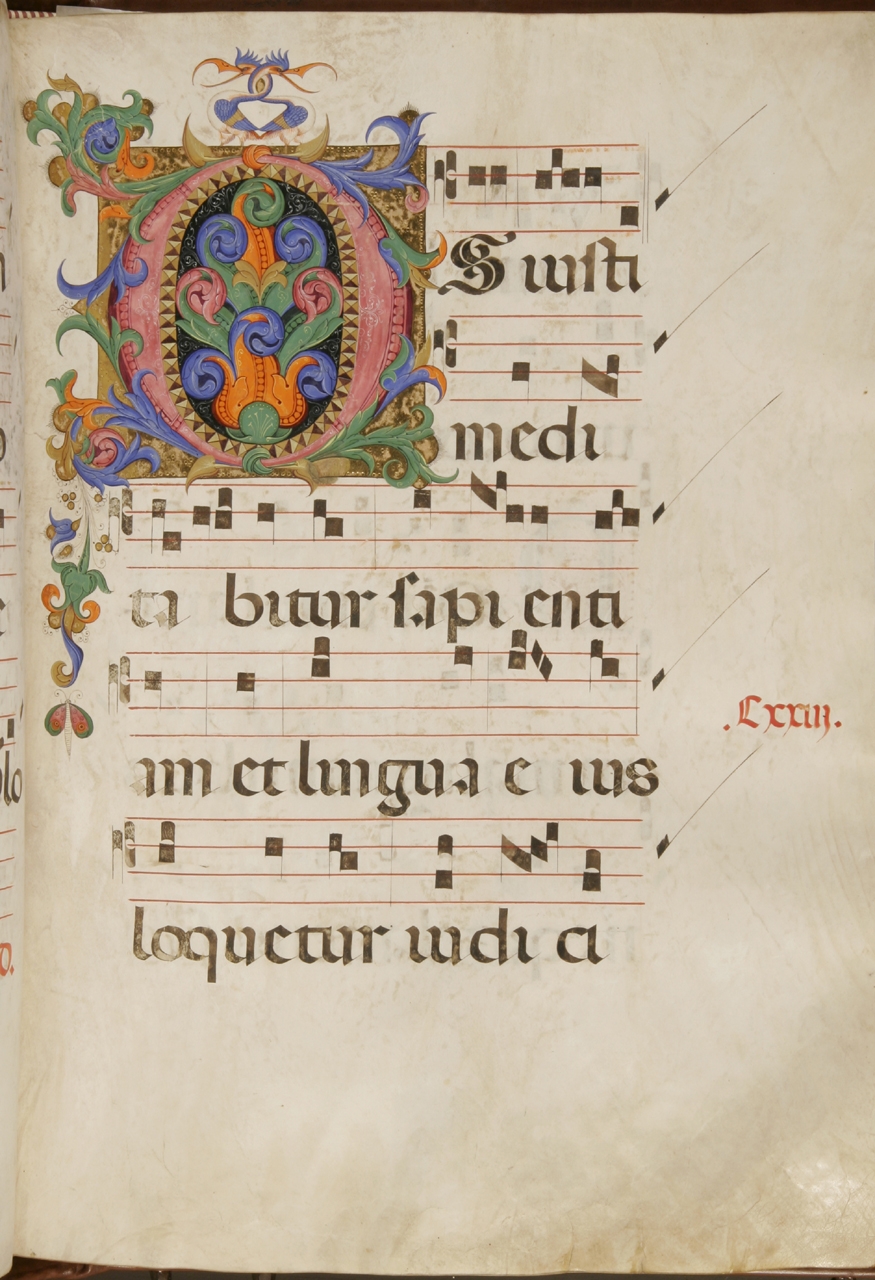 OS iusti
medi
ta bitur sapi enti
am et lingua e ius
.Lxxiij.
loquetur iudi ci